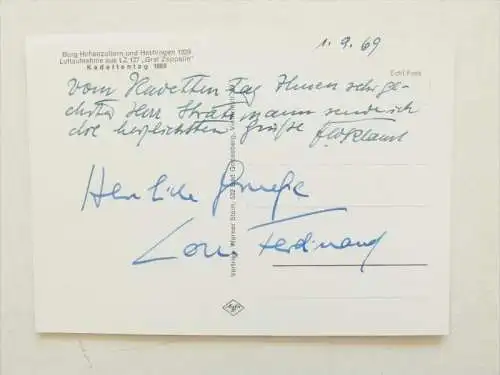 Burg Hohenzollern und Hechingen 1929
Luftaufnahme aus LZ 127 „Graf Zeppelin"
Kadettentag 1969
1.9.69
Echt Foto
Vom Kadetten Tag Ihnen sehr ge-
ehrter Herr Stratmann sende ich
die herzlichsten Grüße
Herzliche Grüße
Louis Ferdinand
Vertrieb Werner Stein, 532 Bad Godesberg
Agfa